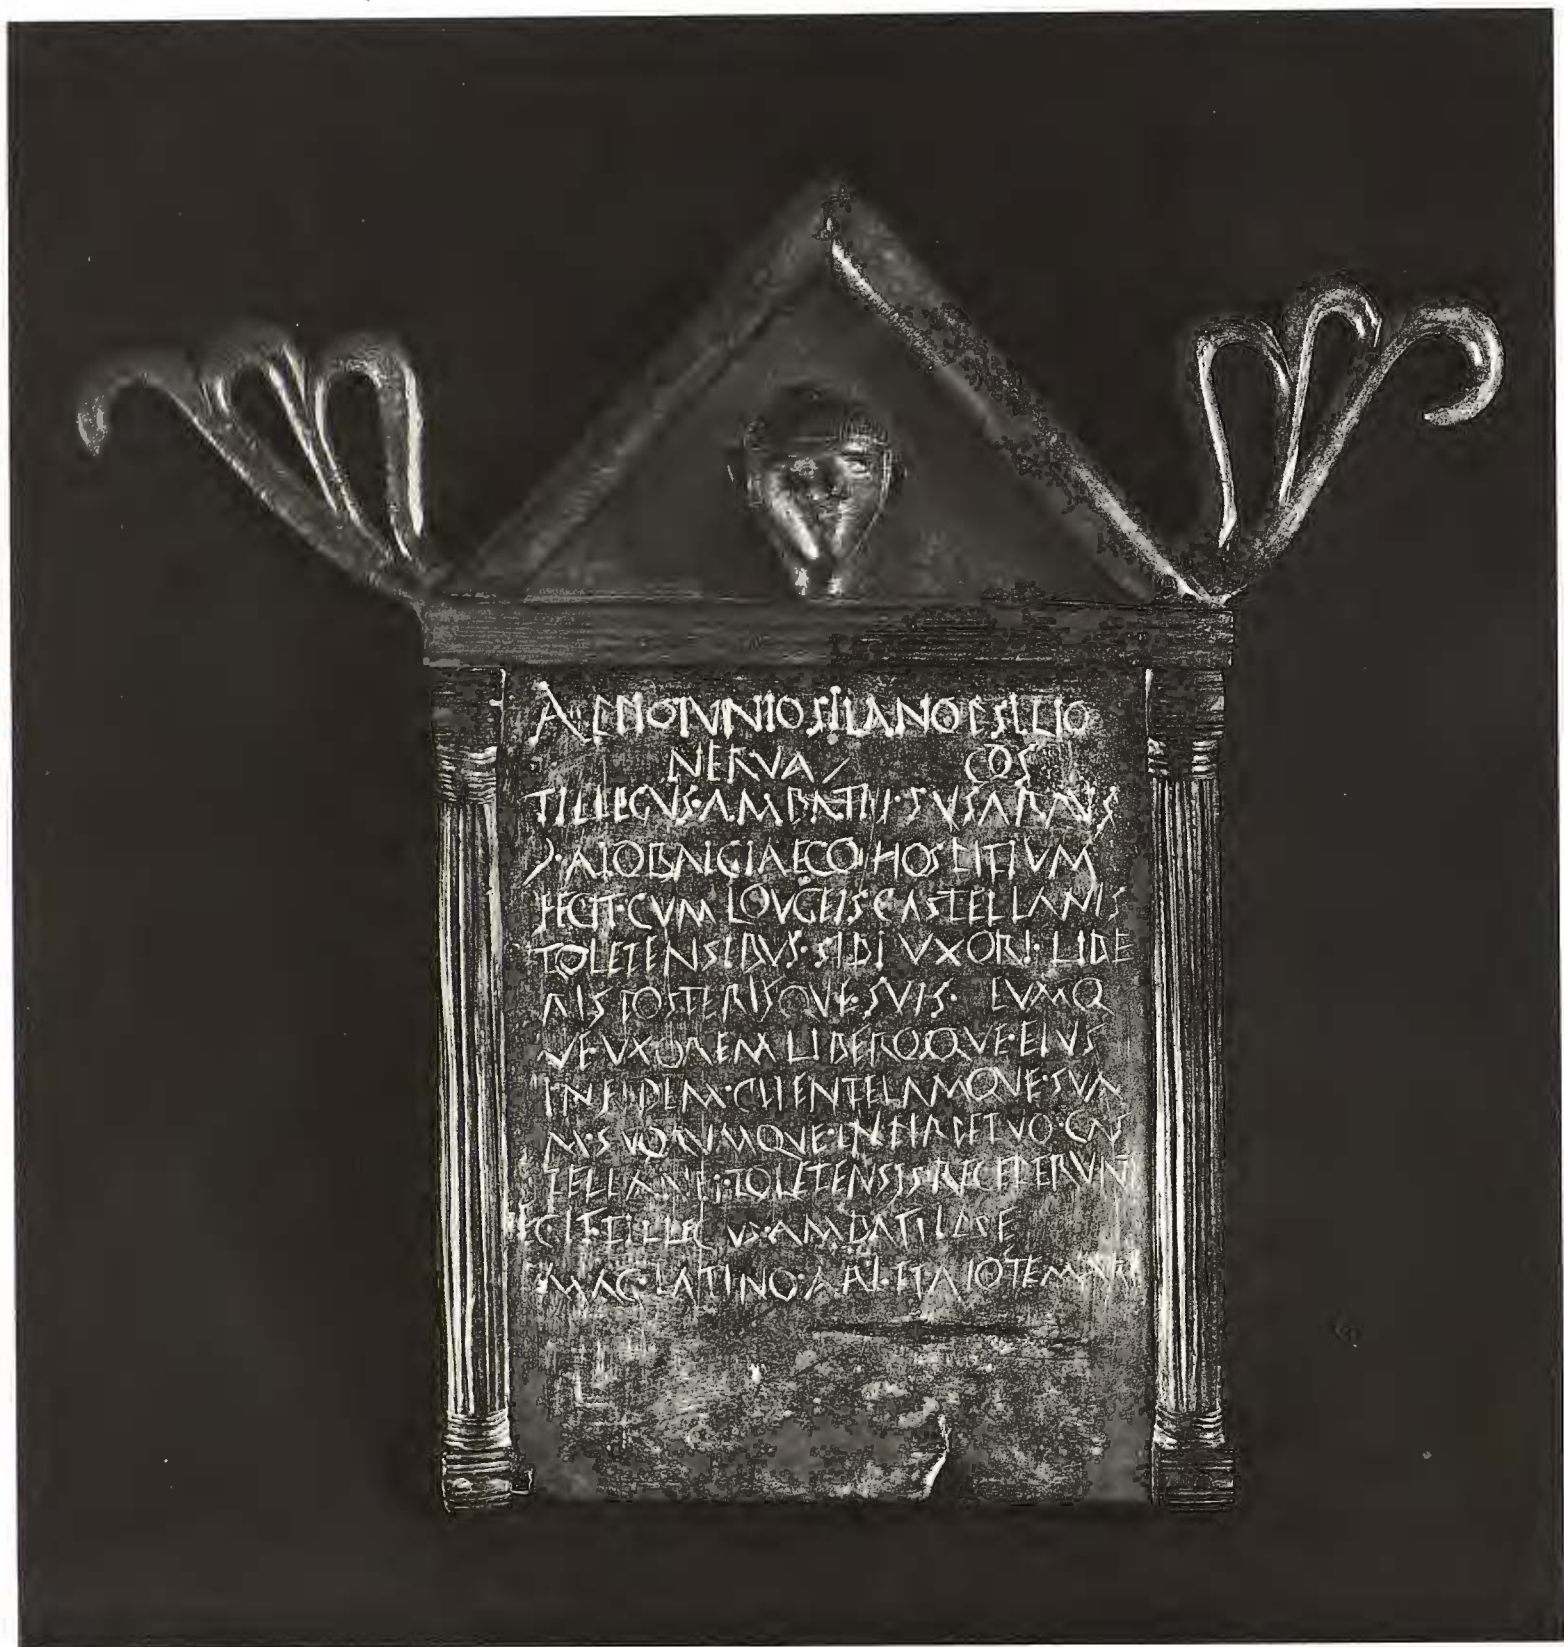 APPIO IVNIO SILANO P SILIO
NERVA COS
TILLEGVS·AMBATI·F·SVSARRVS
Ɔ·AIOBAIGIAECO·HOSPITIVM
FECIT·CVM LOVGEIS CASTELLANIS
TOLETENSIBVS·SIBI VXORI·LIBE
RIS POSTERISQVE·SVIS· EVMQ
VE VXOREM LIBEROSQVE·EIVS
IN FIDEM·CLIENTELAMQVE·SVA
M·SVORVMQVE·IN PERPETVO·CAS
TELLANI·TOLETENSIS·RECEPERVNT
EGIT·TILLEGVS·AMBATI IPSE
MAG·LATINO·ARI·ET AIO TEMARI